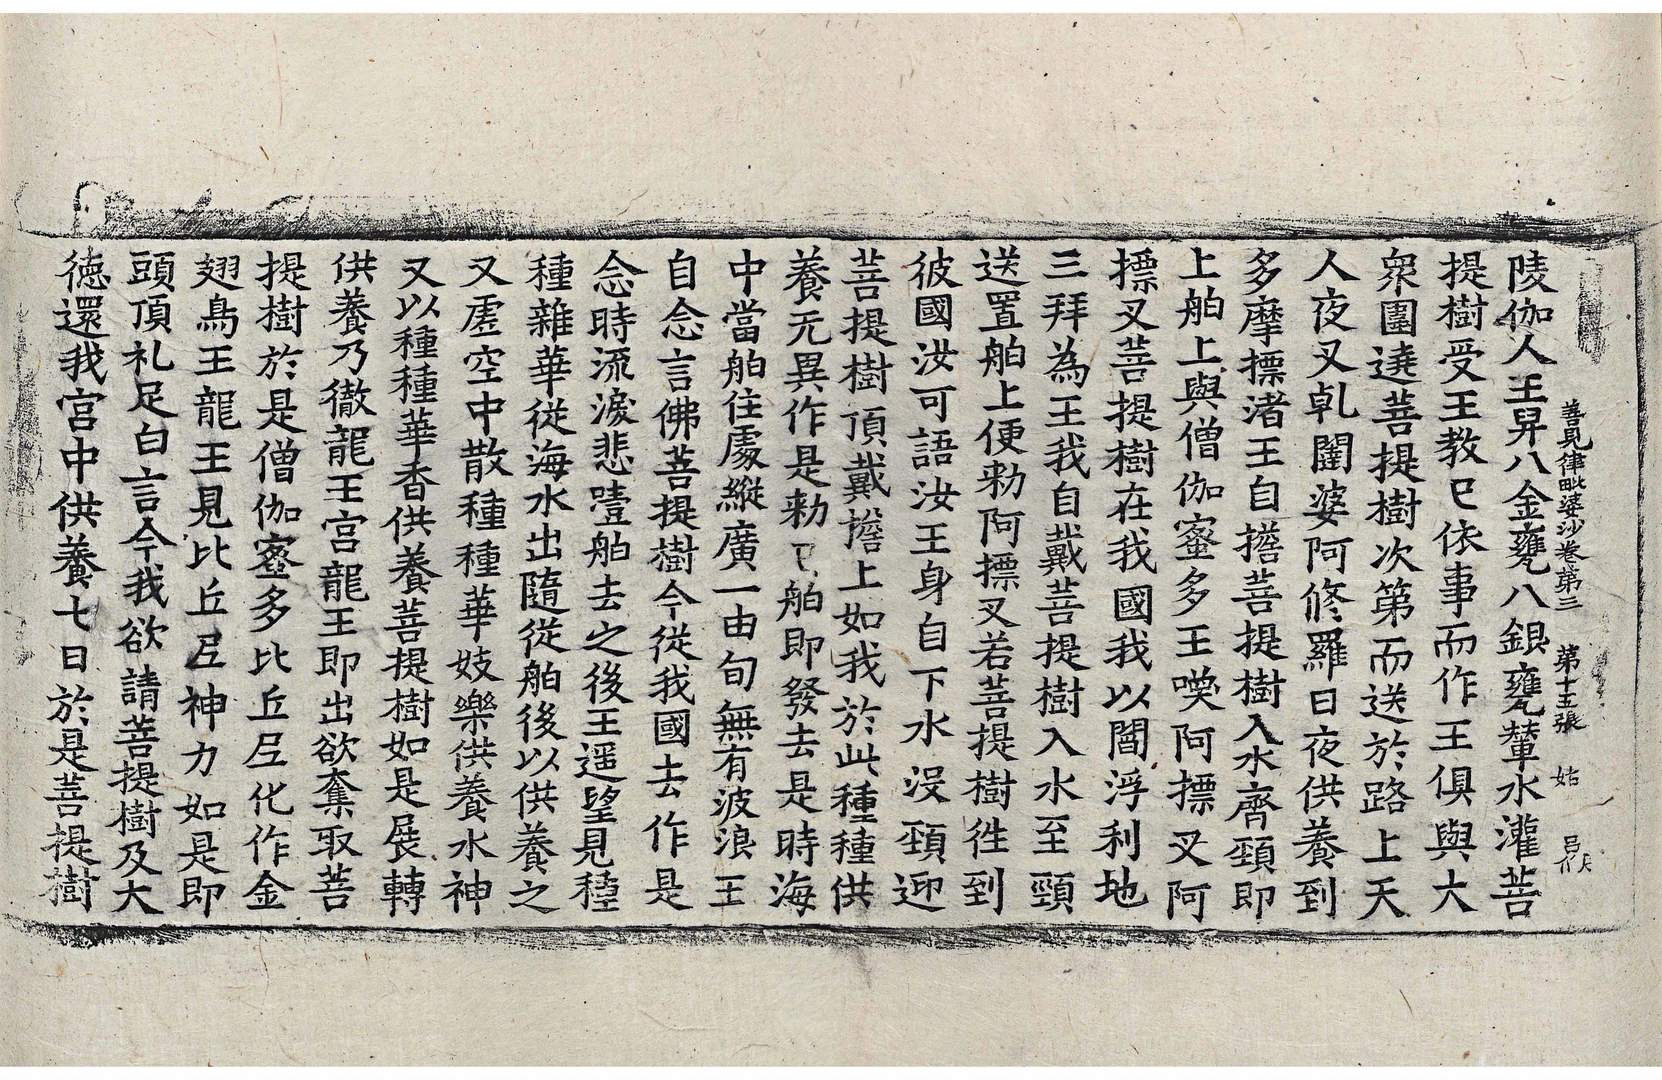 善見律毗婆沙卷第三　第十五張　姑
陵伽人王昇八金甕八銀甕輦水灌菩
提樹受王教已依事而作王俱與大
衆圍遶菩提樹次第而送於路上天
人夜叉乹闥婆阿修羅日夜供養到
多摩摽渚王自擔菩提樹入水齊頸即
上舶上與僧伽蜜多王喚阿摽叉阿
摽叉菩提樹在我國我以閻浮利地
三拜為王我自戴菩提樹入水至頸
送置舶上便勑阿摽叉若菩提樹徃到
彼國汝可語汝王身自下水没頸迎
菩提樹頂戴擔上如我於此種種供
養无異作是勑已舶即發去是時海
中當舶住處縱廣一由旬無有波浪王
自念言佛菩提樹今從我國去作是
念時流淚悲噎舶去之後王遥望見種
種雜華從海水出隨從舶後以供養之
又虗空中散種種華妓樂供養水神
又以種種華香供養菩提樹如是展轉
供養乃徹龍王宫龍王即出欲奪取菩
提樹於是僧伽蜜多比丘尼化作金
翅鳥王龍王見比丘尼神力如是即
頭頂礼足白言今我欲請菩提樹及大
德還我宫中供養七日於是菩提樹